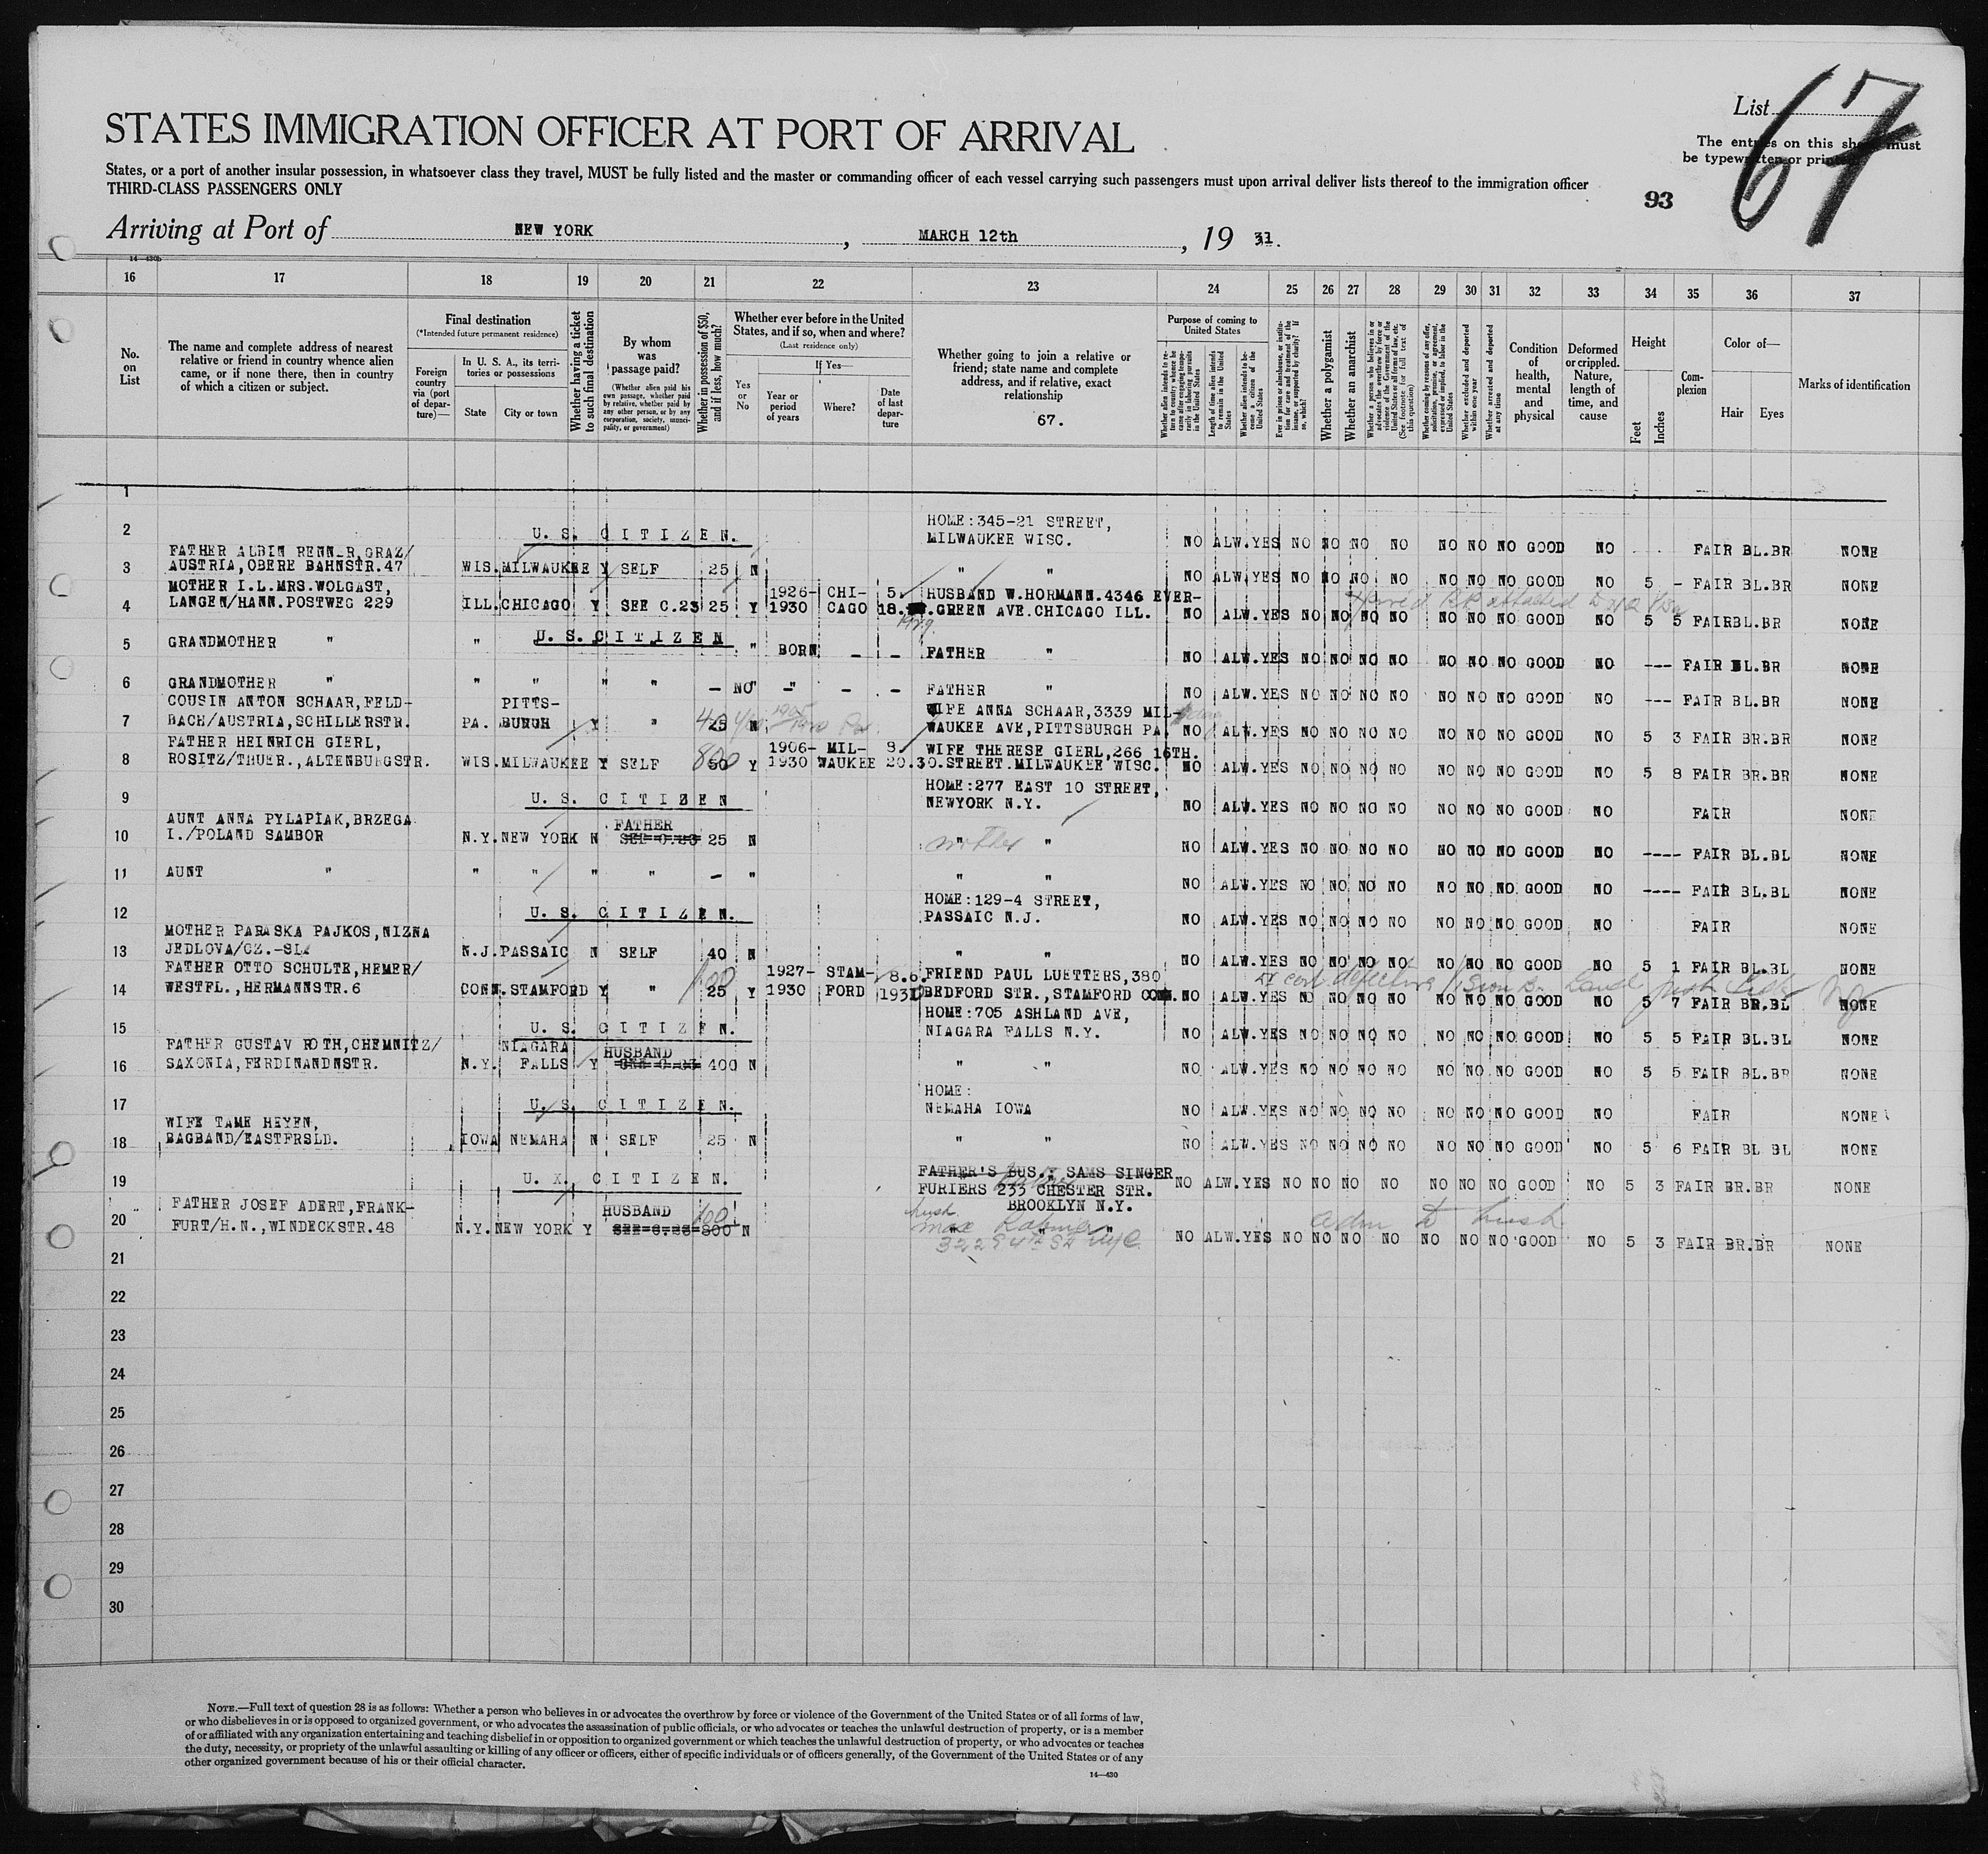 List 67
STATES IMMIGRATION OFFICER AT PORT OF ARRIVAL
The entries on this sheet must
be typewritten or printed
States, or a port of another insular possession, in whatsoever class they travel, MUST be fully listed and the master or commanding officer of each vessel carrying such passengers must upon arrival deliver lists thereof to the immigration officer
THIRD-CLASS PASSENGERS ONLY
93
Arriving at Port of NEW YORK, MARCH 12th, 19 31.
14—430b
16 17 18 19 20 21 22 23 24 25 26 27 28 29 30 31 32 33 34 35 36 37
No. on List
The name and complete address of nearest relative or friend in country whence alien came, or if none there, then in country of which a citizen or subject.
Final destination
(*Intended future permanent residence)
Foreign country via (port of departure)—
In U. S. A., its territories or possessions
State
City or town
Whether having a ticket to such final destination
By whom was passage paid?
(Whether alien paid his own passage, whether paid by relative, whether paid by any other person, or by any corporation, society, municipality, or government)
Whether in possession of $50, and if less, how much?
Whether ever before in the United States, and if so, when and where?
(Last residence only)
Yes or No
If Yes—
Year or period of years
Where?
Date of last departure
Whether going to join a relative or friend; state name and complete address, and if relative, exact relationship
67.
Purpose of coming to United States
Whether alien intends to return to country whence he came after engaging temporarily in laboring pursuits in the United States
Length of time alien intends to remain in the United States
Whether alien intends to become a citizen of the United States
Ever in prison or almshouse, or institution for care and treatment of the insane, or supported by charity? If so, which?
Whether a polygamist
Whether an anarchist
Whether a person who believes in or advocates the overthrow by force or violence of the Government of the United States or all forms of law, etc. (See footnote for full text of this question)
Whether coming by reason of any offer, solicitation, promise, or agreement, expressed or implied, to labor in the United States
Whether excluded and deported within one year
Whether arrested and deported at any time
Condition of health, mental and physical
Deformed or crippled. Nature, length of time, and cause
Height
Feet
Inches
Complexion
Color of—
Hair
Eyes
Marks of identification
1
2 U. S. CITIZEN. HOME:345-21 STREET, MILWAUKEE WISC. NO ALW.YES NO NO NO NO NO NO NO GOOD NO FAIR BL.BR NONE
3 FATHER ALBIN RENNER,GRAZ/ AUSTRIA,OBERE BAHNSTR.47 WIS. MILWAUKEE Y SELF 25 N " " NO ALW.YES NO NO NO NO NO NO NO GOOD NO 5 - FAIR BL.BR NONE
4 MOTHER I.L.MRS.WOLGAST, LANGEN/HANN.POSTWEG 229 ILL. CHICAGO Y SEE C.23 25 Y 1926-1930 CHICAGO 5. 18. HUSBAND W.HORMANN.4346 EVER-GREEN AVE.CHICAGO ILL. NO ALW.YES NO NO NO NO NO NO NO GOOD NO 5 5 FAIR BL.BR NONE
5 GRANDMOTHER " " U. S. CITIZEN " BORN - - FATHER " NO ALW.YES NO NO NO NO NO NO NO GOOD NO --- FAIR BL.BR NONE
6 GRANDMOTHER " " " " " - NO" -" - - FATHER " NO ALW.YES NO NO NO NO NO NO NO GOOD NO --- FAIR BL.BR NONE
7 COUSIN ANTON SCHAAR,FELD-BACH/AUSTRIA,SCHILLERSTR. PA. PITTS-BURGH Y " 25 N WIFE ANNA SCHAAR,3339 MIL-WAUKEE AVE,PITTSBURGH PA. NO ALW.YES NO NO NO NO NO NO NO GOOD NO 5 3 FAIR BR.BR NONE
8 FATHER HEINRICH GIERL, ROSITZ/THUER.,ALTENBURGSTR. WIS. MILWAUKEE Y SELF 50 800 Y 1906-1930 MIL-WAUKEE 8. 20.30. WIFE THERESE GIERL,266 16TH. STREET.MILWAUKEE WISC. NO ALW.YES NO NO NO NO NO NO NO GOOD NO 5 8 FAIR BR.BR NONE
9 U. S. CITIZEN HOME:277 EAST 10 STREET, NEWYORK N.Y. NO ALW.YES NO NO NO NO NO NO NO GOOD NO FAIR NONE
10 AUNT ANNA PYLAPIAK,BRZEGA I./POLAND SAMBOR N.Y. NEW YORK N FATHER SEE C.23 25 N mother " " NO ALW.YES NO NO NO NO NO NO NO GOOD NO ---- FAIR BL.BL NONE
11 AUNT " " " " " - " " " NO ALW.YES NO NO NO NO NO NO NO GOOD NO ---- FAIR BL.BL NONE
12 U. S. CITIZEN. HOME:129-4 STREET, PASSAIC N.J. NO ALW.YES NO NO NO NO NO NO NO GOOD NO FAIR NONE
13 MOTHER PARASKA PAJKOS,NIZNA JEDLOVA/CZ.-SL. N.J. PASSAIC N SELF 40 N " " NO ALW.YES NO NO NO NO NO NO NO GOOD NO 5 1 FAIR BL.BL NONE
14 FATHER OTTO SCHULTE,HEMER/ WESTFL.,HERMANNSTR.6 CONN. STAMFORD Y " 25 100 Y 1927-1930 STAM-FORD 8.6. 1930 FRIEND PAUL LUETTERS,380 BEDFORD STR.,STAMFORD CONN. NO ALW.YES NO NO NO NO NO NO NO GOOD NO 5 7 FAIR BR.BL NONE
defective vision
15 U. S. CITIZEN. HOME:705 ASHLAND AVE, NIAGARA FALLS N.Y. NO ALW.YES NO NO NO NO NO NO NO GOOD NO 5 5 FAIR BL.BL NONE
16 FATHER GUSTAV ROTH,CHEMNITZ/ SAXONIA,FERDINANDNSTR. N.Y. NIAGARA FALLS Y HUSBAND SEE C.23 400 N " " NO ALW.YES NO NO NO NO NO NO NO GOOD NO 5 5 FAIR BL.BR NONE
17 U. S. CITIZEN. HOME: NEMAHA IOWA NO ALW.YES NO NO NO NO NO NO NO GOOD NO FAIR NONE
18 WIFE TAME HEYEN, BAGBAND/EASTFRSLD. IOWA NEMAHA N SELF 25 N " " NO ALW.YES NO NO NO NO NO NO NO GOOD NO 5 6 FAIR BL BL NONE
19 U. X. CITIZEN. FATHER'S BUS.: SAMS SINGER FURIERS 233 CHESTER STR. BROOKLYN N.Y. NO ALW.YES NO NO NO NO NO NO NO GOOD NO 5 3 FAIR BR.BR NONE
20 FATHER JOSEF ADERT,FRANK-FURT/H.N.,WINDECKSTR.48 N.Y. NEW YORK Y HUSBAND SEE C.23 800 100 N husb Max " " NO ALW.YES NO NO NO NO NO NO NO GOOD NO 5 3 FAIR BR.BR NONE
adm to husb
21
22
23
24
25
26
27
28
29
30
NOTE.—Full text of question 28 is as follows: Whether a person who believes in or advocates the overthrow by force or violence of the Government of the United States or of all forms of law,
or who disbelieves in or is opposed to organized government, or who advocates the assassination of public officials, or who advocates or teaches the unlawful destruction of property, or is a member
of or affiliated with any organization entertaining and teaching disbelief in or opposition to organized government or which teaches the unlawful destruction of property, or who advocates or teaches
the duty, necessity, or propriety of the unlawful assaulting or killing of any officer or officers, either of specific individuals or of officers generally, of the Government of the United States or of any
other organized government because of his or their official character.
14—430